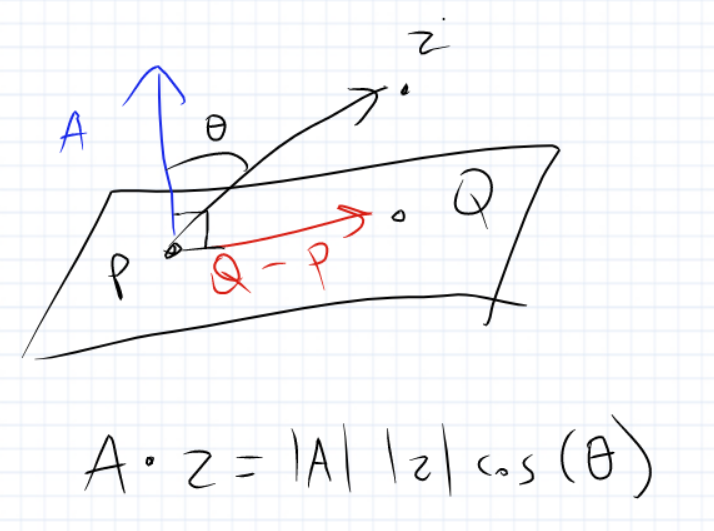 z
A
θ
Q
P
Q - P
A · z = |A| |z| cos(θ)